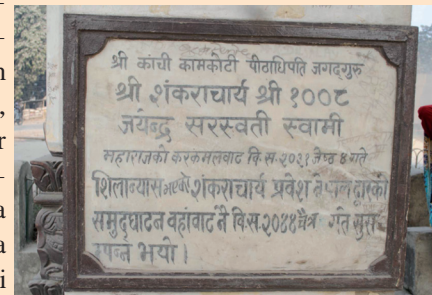 n
,
r
a
a
i
श्री कांची कामकोटी पीठाधिपति जगद्गुरु
श्री शंकराचार्य श्री १००८
जयेन्द्र सरस्वती स्वामी
महाराजको करकमलवाट वि.स.२०३१ जेष्ठ ४ गते
शिलान्यास भएको शंकराचार्य प्रवेश
समुद्घाटन वहांवाट नै वि.स.२०४४ चैत्र गते सुस
म्पन्न भयो ।